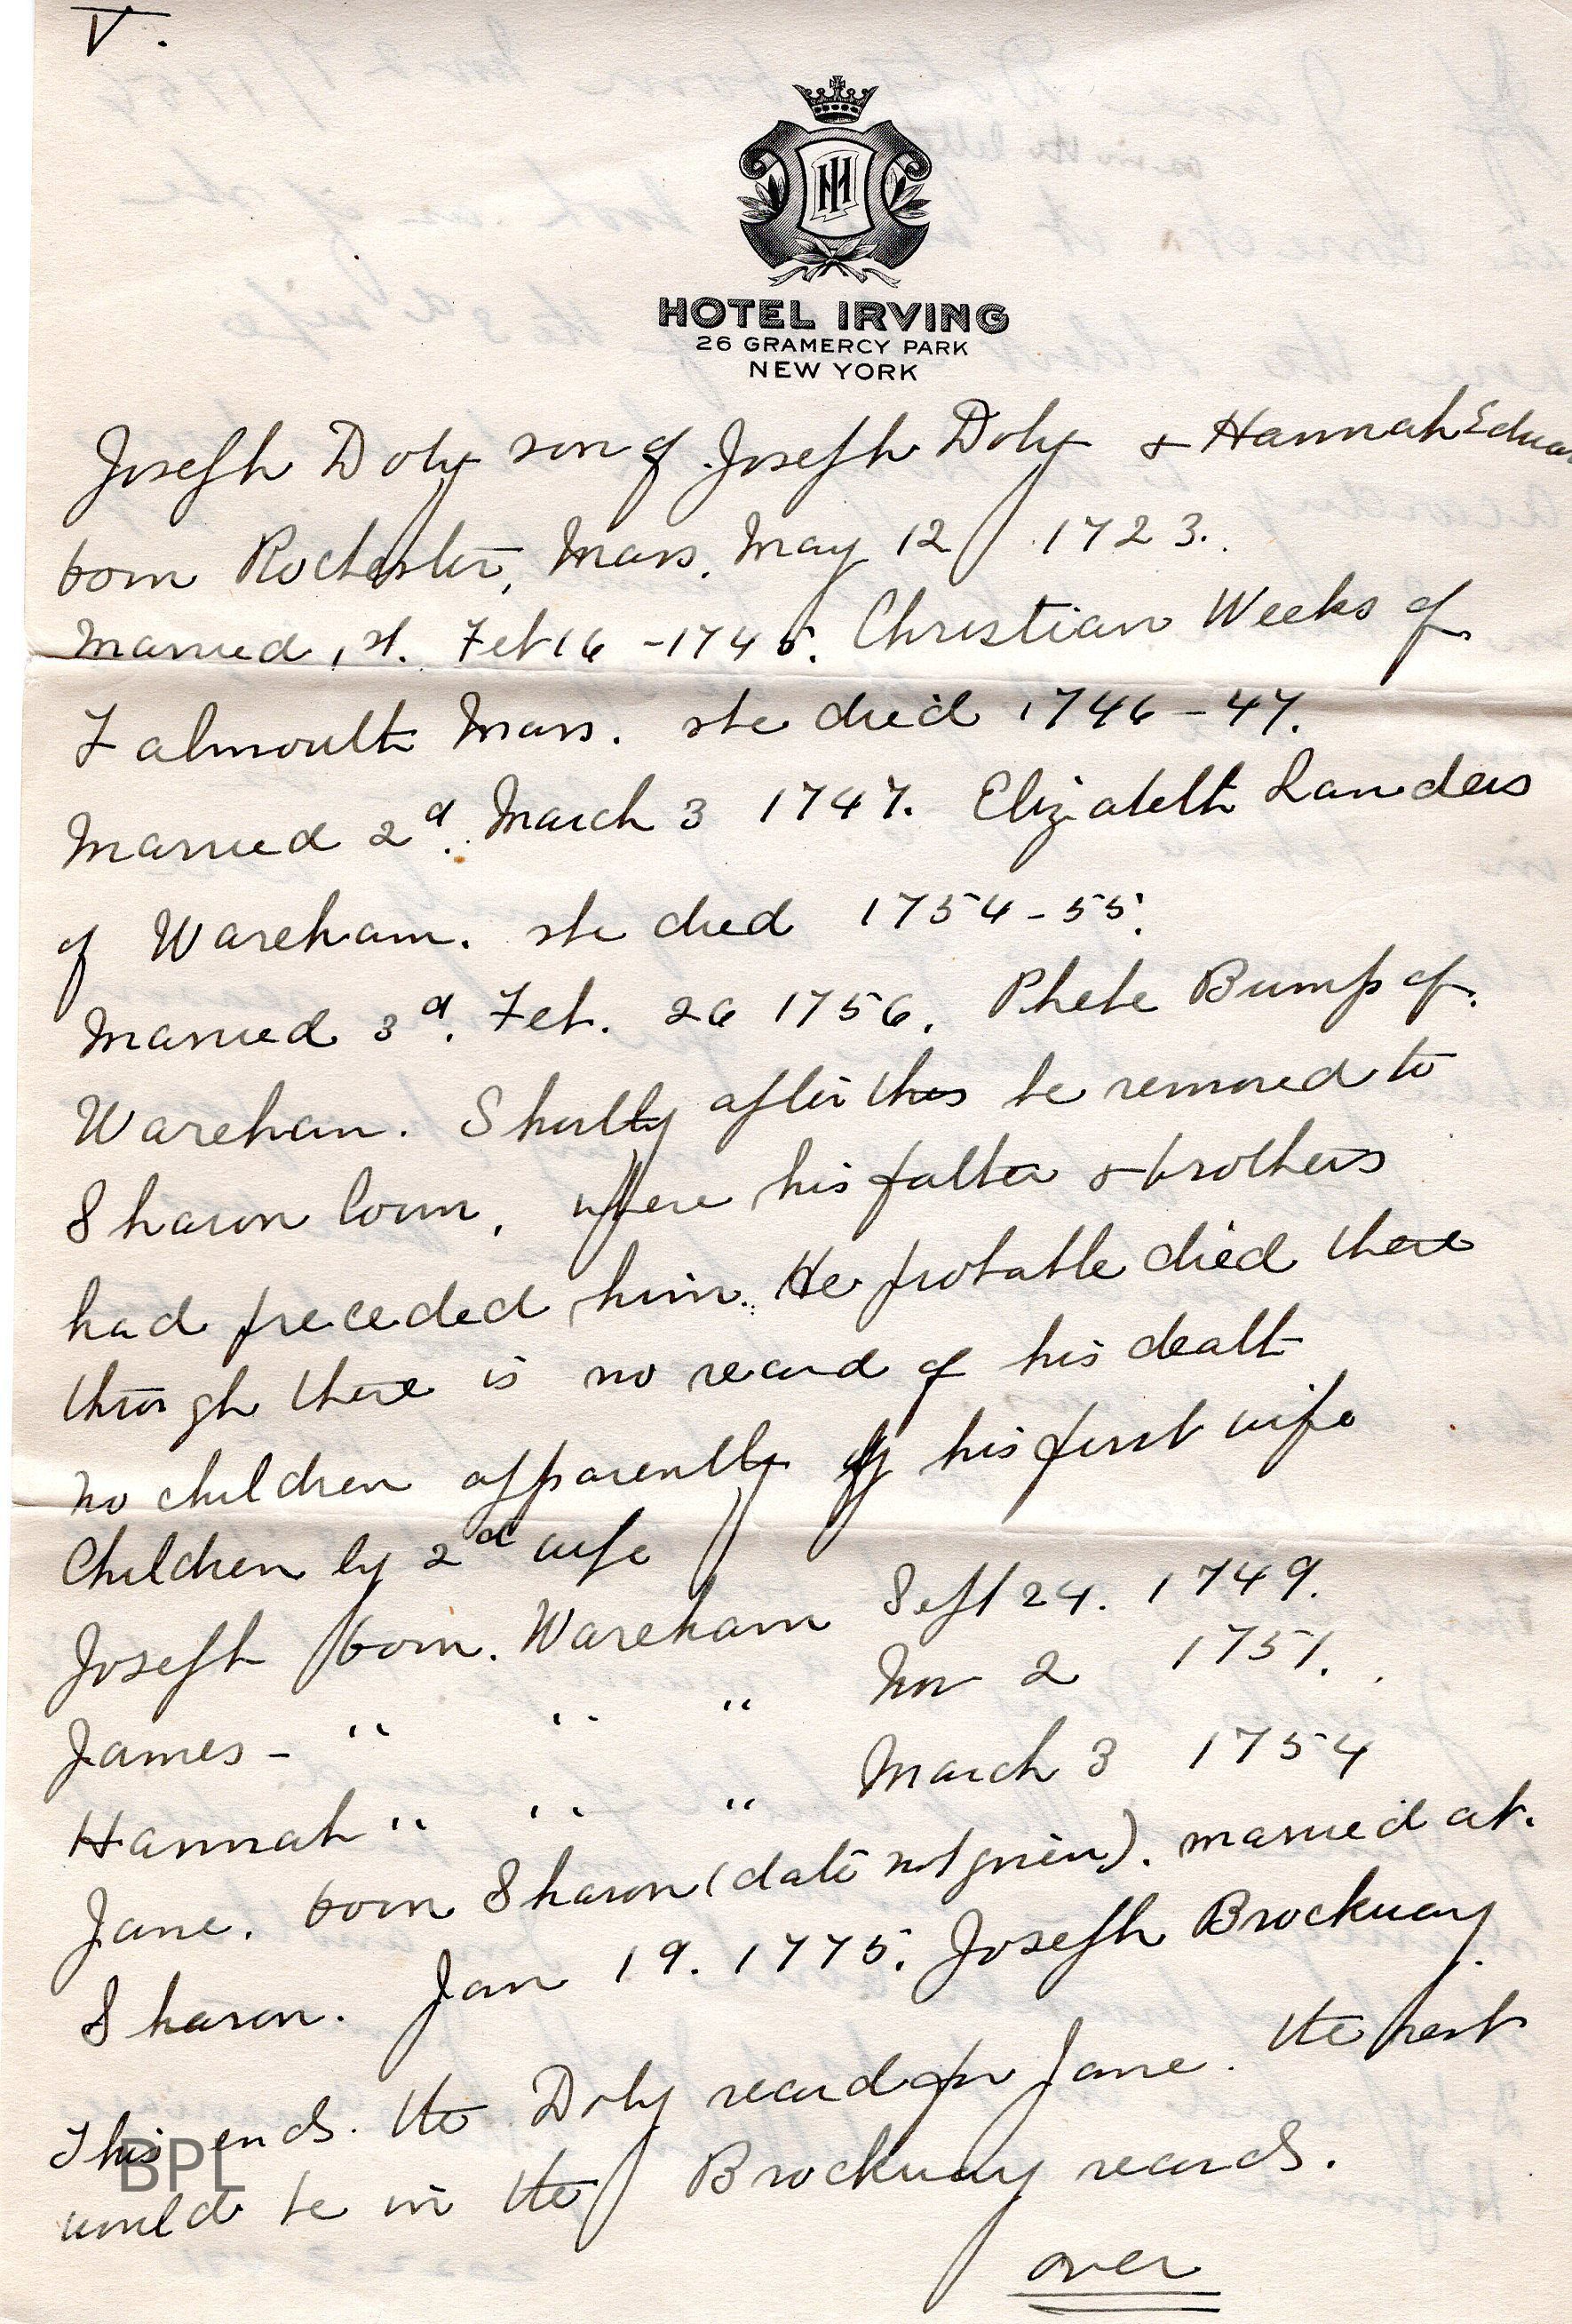 V.
HI
HOTEL IRVING
26 GRAMERCY PARK
NEW YORK
Joseph Doty son of Joseph Doty & Hannah Edwar
born Rochester, Mass. May 12 1723.
Married 1st. Feb 16 - 1745. Christian Weeks of
Falmouth Mass. she died 1746 - 47.
Married 2d. March 3 1747. Elizabeth Landers
of Wareham. she died 1754 - 55.
Married 3d. Feb. 26 1756. Phebe Bump of.
Wareham. Shortly after this he removed to
Sharon Conn. where his father & brothers
had preceded him. He probable died there
though there is no record of his death
no children apparently by his first wife
Children by 2d wife
Joseph born. Wareham Sept 24. 1749.
James - " " " Nov 2 1751.
Hannah " " " March 3 1754
Jane. born Sharon (date not given). married at.
Sharon. Jan 19. 1775. Joseph Brockway
This ends. the Doty record for Jane. the rest
would be in the Brockway records.
over
BPL